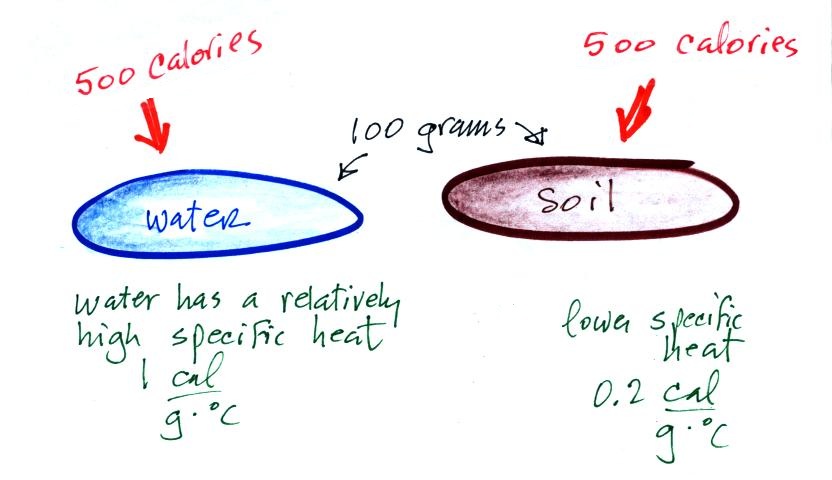 500 calories
500 calories
100 grams
water
soil
water has a relatively
high specific heat
1 cal
g · °C
lower specific
heat
0.2 cal
g · °C